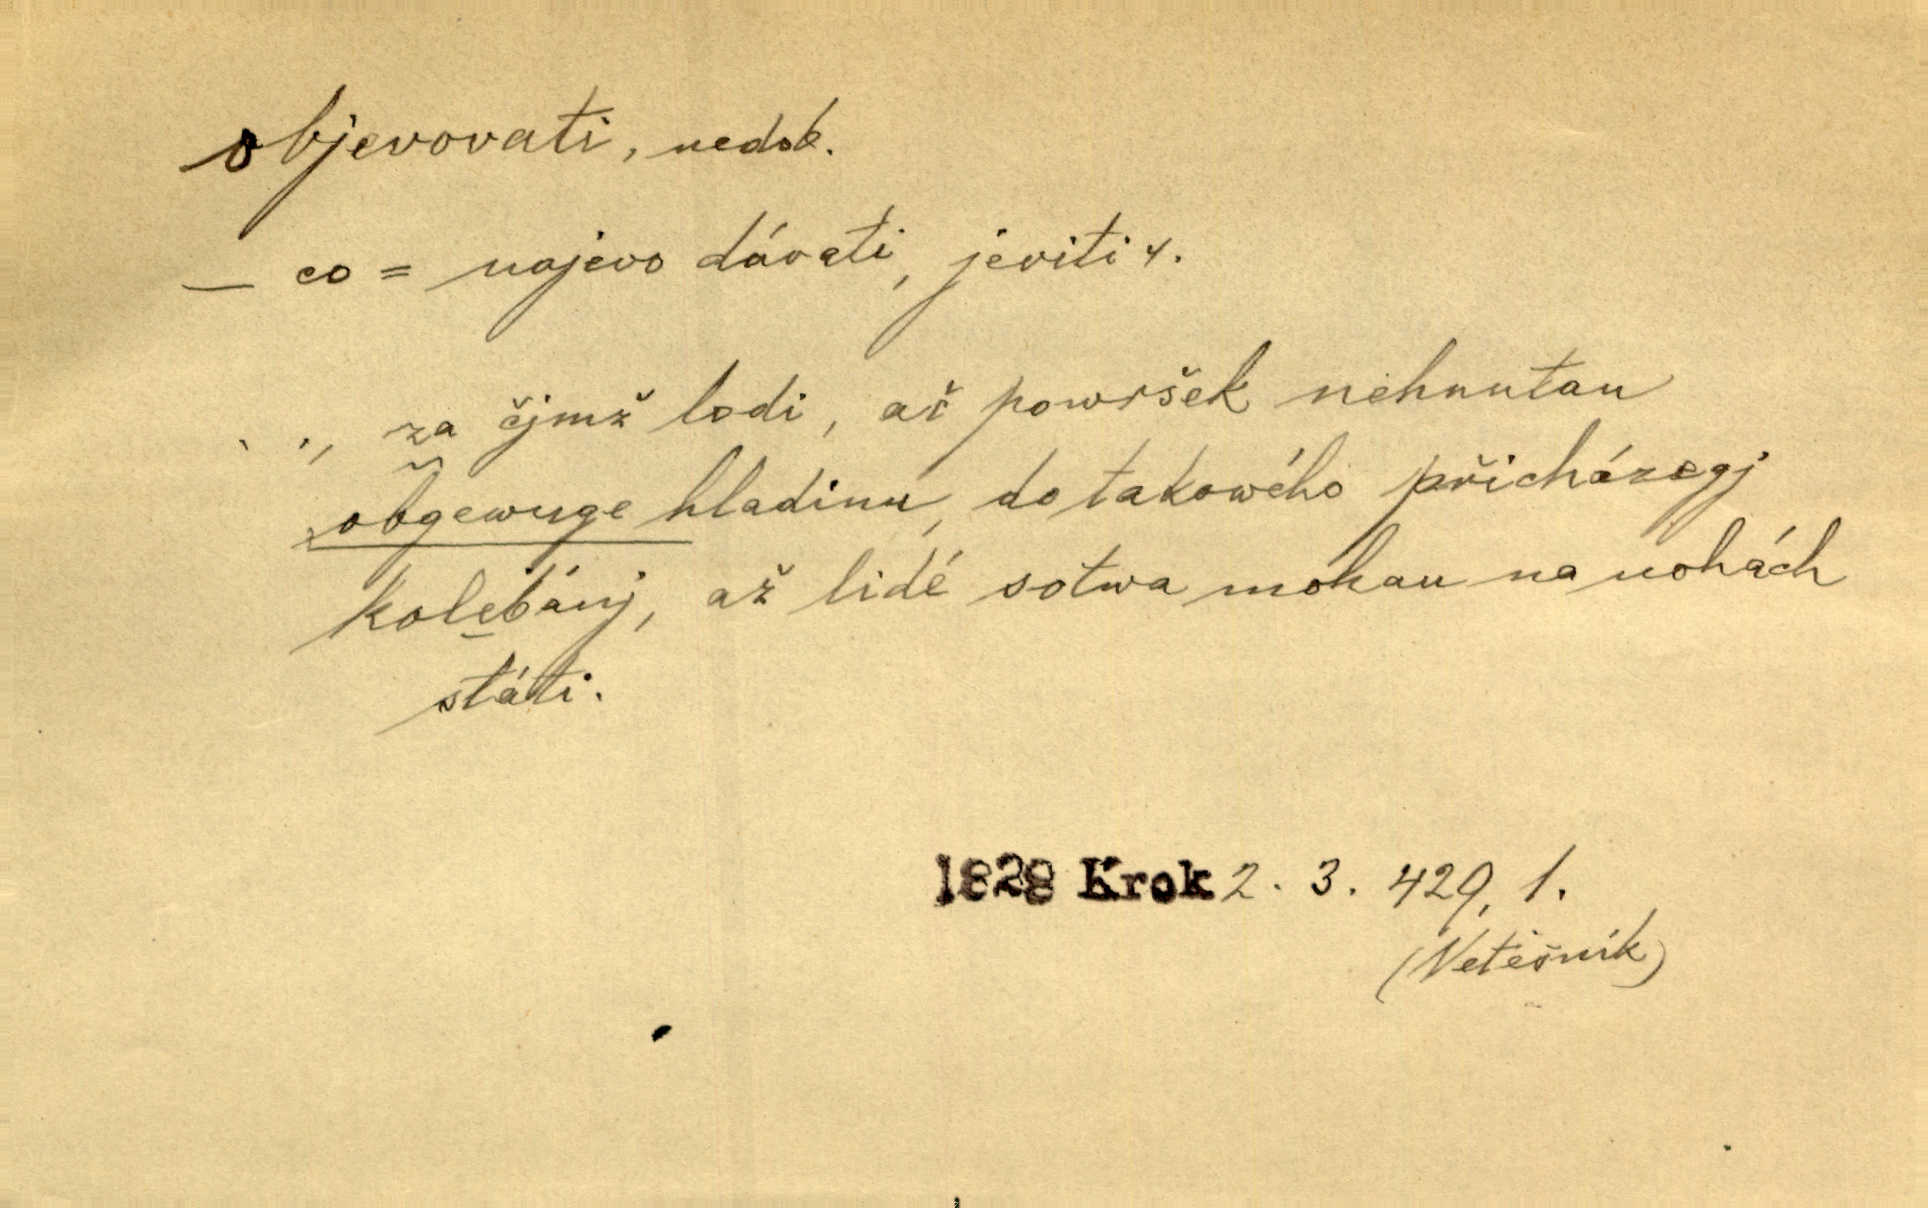 objevovati, nedok.
— co = najevo dávati, jeviti
. ., za čjmž lodi, ač powršek nehnutau
obgewuge hladinu, do takowého přicházegj
kolebánj, až lidé sotwa mohau na nohách
státi.
1828 Krok 2. 3. 429, 1.
(Netěšník)